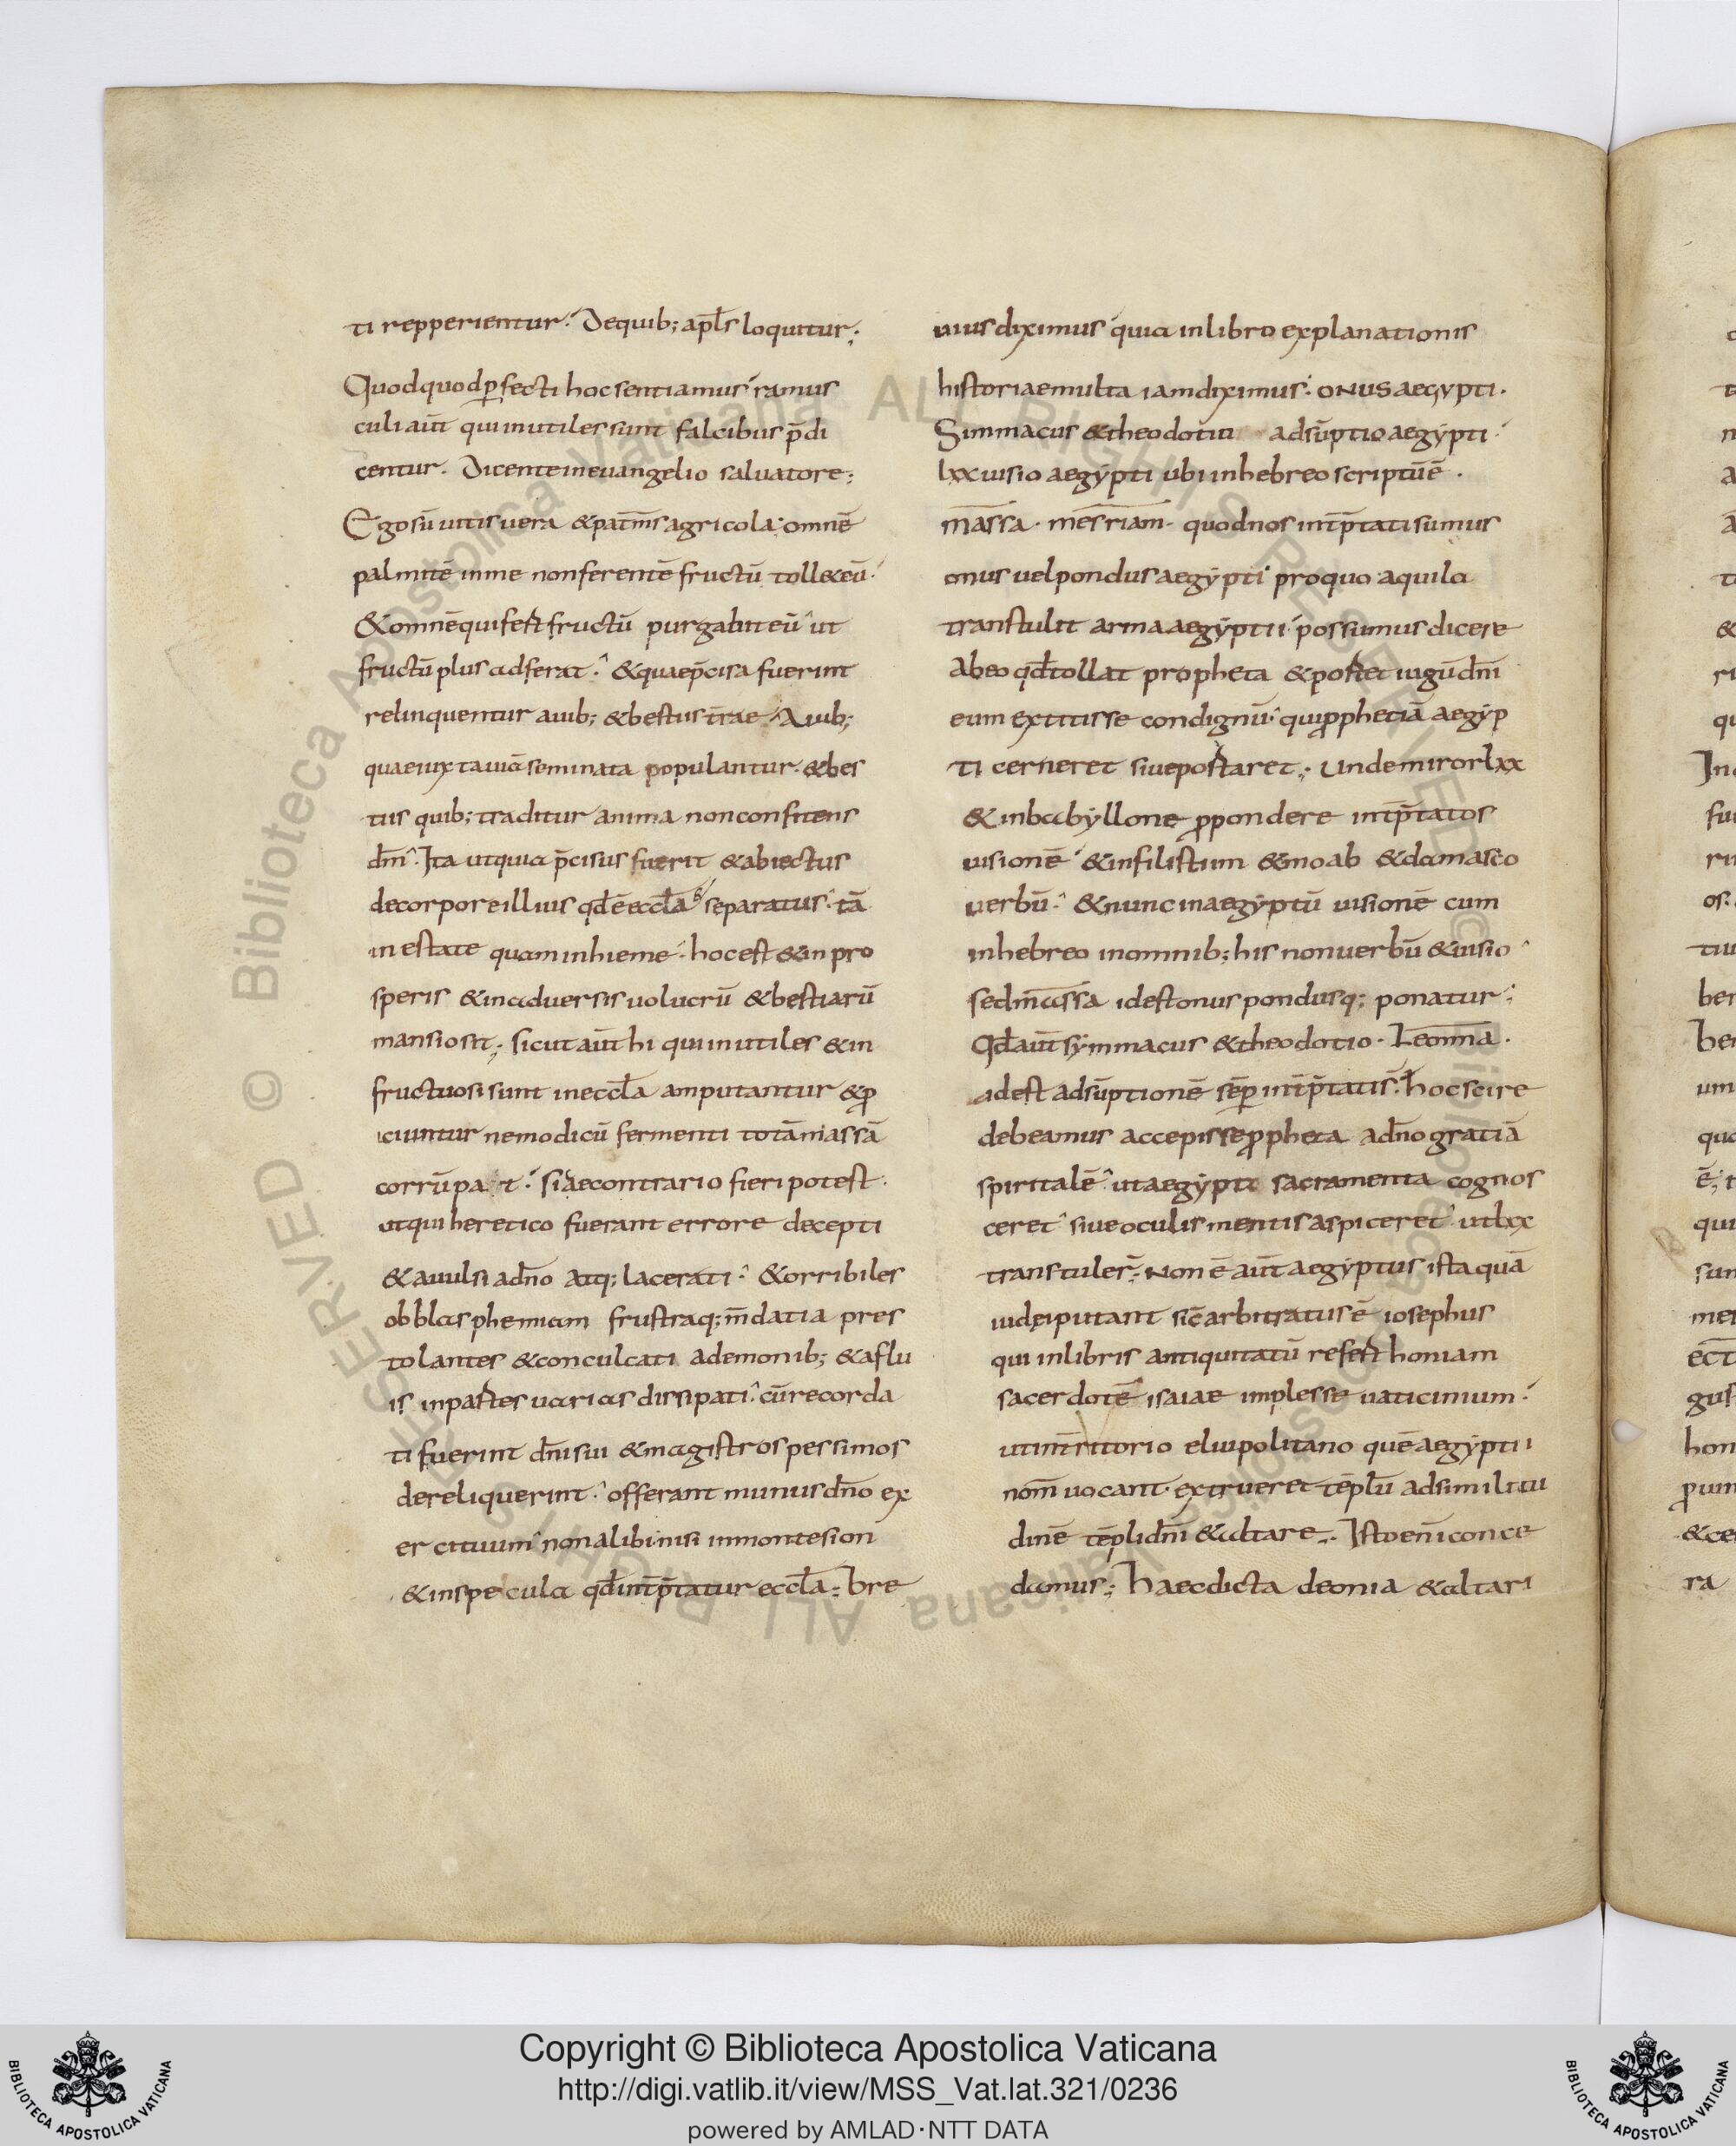 ti repperientur. Dequib; apl̄s loquitur;
Quodquodꝑfecti hocsentiamus ramus
culi aūt qui inutiles sunt falcibus p̄di
centur. Dicente in euangelio saluatore;
Ego sū uitis uera & pat̄ m̄s agricola; omnē
palmitē in me non ferentē fructū toll&eū.
& omnē qui fert fructū purgabit eū ut
fructū plus adferat. & quae p̄cisa fuerint
relinquentur auib; & bestiis t̄rae. Auib;
quae iuxta uiā seminata populantur. & bes
tiis quib; traditur anima non confitens
dm̄. Ita ut quia p̄cisus fuerit & abiectus
de corpore illius qd̄ ē eccl̄a separatus. tā
in estate quam in hieme. hoc est & in pro
speris & in aduersis uolucrū & bestiarū
mansio sit; sicut aūt hi qui inutiles & in
fructuosi sunt in eccl̄a amputantur & ꝓ
iciuntur ne modicū fermenti totā massā
corrūpat. si de contrario fieri potest.
ut qui heretico fuerant errore decepti
& auulsi a dn̄o atq; lacerati. & orribiles
ob blasphemiam frustraq; m̄datia pres
tolantes & conculcati a demonib; & a flu
is in partes uarias dissipati. cū recorda
ti fuerint dn̄i sui & magistros pessimos
dereliquerint. offerant munus dn̄o ex
ercituum non alibi nisi in monte sion
& in specula qd̄ int̄p̄tatur eccl̄a; bre
uius diximus quia in libro explanationis
historiae multa iam diximus. ONUS aegypti.
Simmacus & theodotiu adsūptio aegẏpti
lxx uisio aegẏpti ubi in hebreo scriptū ē.
massa. mesriam. quod nos int̄p̄tati sumus
onus uel pondus aegẏpti pro quo aquila
transtulit arma aegẏptii possumus dicere
ab eo qd̄ tollat propheta & portet iugū dn̄i
eum extitisse condignū qui ꝓphetiā aegẏp
ti cerneret siue portaret; Unde miror lxx
& in babẏllone ꝓpondere int̄p̄tatos
uisionē & in filistiim & moab & damasco
uerbū. & nunc in aegẏptū uisionē cum
in hebreo in omnib; his non uerbū & uisio
sed massa id est onus pondusq; ponatur;
Qd̄ aūt sẏmmacus & theodotio. Leomma.
id est adsūptionē sēꝑ int̄p̄tatis. hoc scire
debeamus accepisse ꝓpheta a dn̄o gratiā
spiritalē. ut aegẏpti sacramenta cognos
ceret siue oculis mentis aspiceret ut lxx
transtuler̄; Non ē aūt aegẏptus ista quā
iudęi putant sic̄ arbitratus ē iosephus
qui in libris antiquitatū refert honiam
sacerdotē isaiae implesse uaticinium.
ut in t̄ritorio eliupolitano quē aegẏptii
nom̄ uocant. extrueret tēplū ad similitu
dinē tēpli dn̄i & altare;. Isto eni conce
damus; haec dicta de onia & altari
Copyright © Biblioteca Apostolica Vaticana
http://digi.vatlib.it/view/MSS_Vat.lat.321/0236
powered by AMLAD·NTT DATA